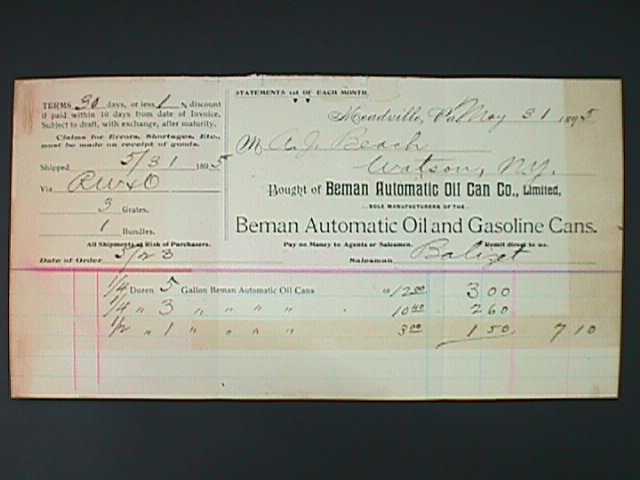 STATEMENTS 1st OF EACH MONTH.
TERMS 30 days, or less 1 % discount
if paid within 10 days from date of Invoice.
Subject to draft, with exchange, after maturity.
Claims for Errors, Shortages, Etc.,
must be made on receipt of goods.
Shipped 5/31 1895
Via R W & O
3 Crates.
1 Bundles.
All Shipments at Risk of Purchasers.
Date of Order 5/23
Meadville, Pa. May 31 1895
M A. J. Beach
Watson, N.Y.
Bought of Beman Automatic Oil Can Co., Limited,
SOLE MANUFACTURERS OF THE
Beman Automatic Oil and Gasoline Cans.
Pay no Money to Agents or Salesmen. Remit direct to us.
Salesman
1/4 Dozen 5 Gallon Beman Automatic Oil Cans " 12 00 3 00
1/4 " 3 " " " " 10 40 2 60
1/2 " 1 " " " " 3 00 1 50 7 10